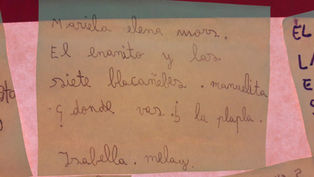 Mariela elena mors.
El enanito y las
siete blacañeles. manuelita
¿ donde vas ? la plapla.
Isabella. melay.
EL
LA
E